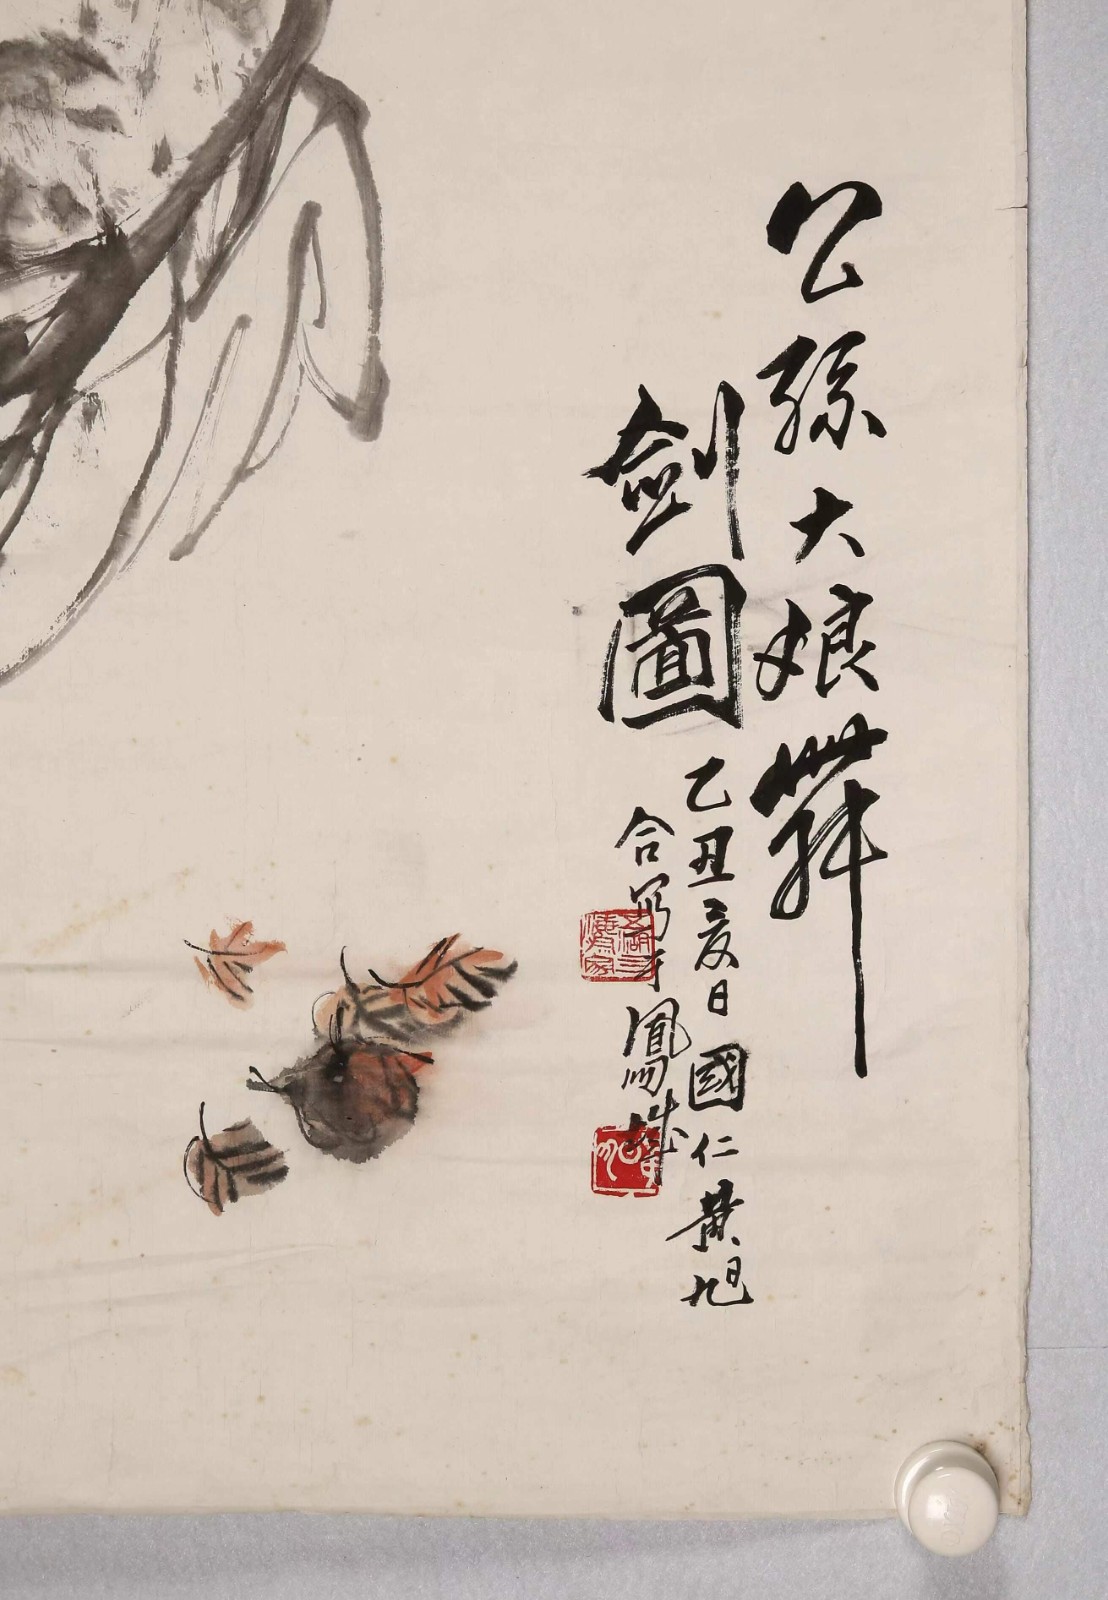 公孫大娘舞
劍圖
乙丑夏日國仁黃旭
合寫于鳳城